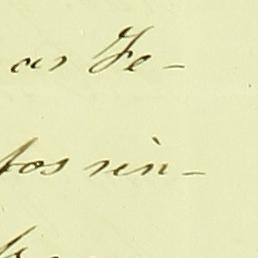 as Fe-
tos sin-